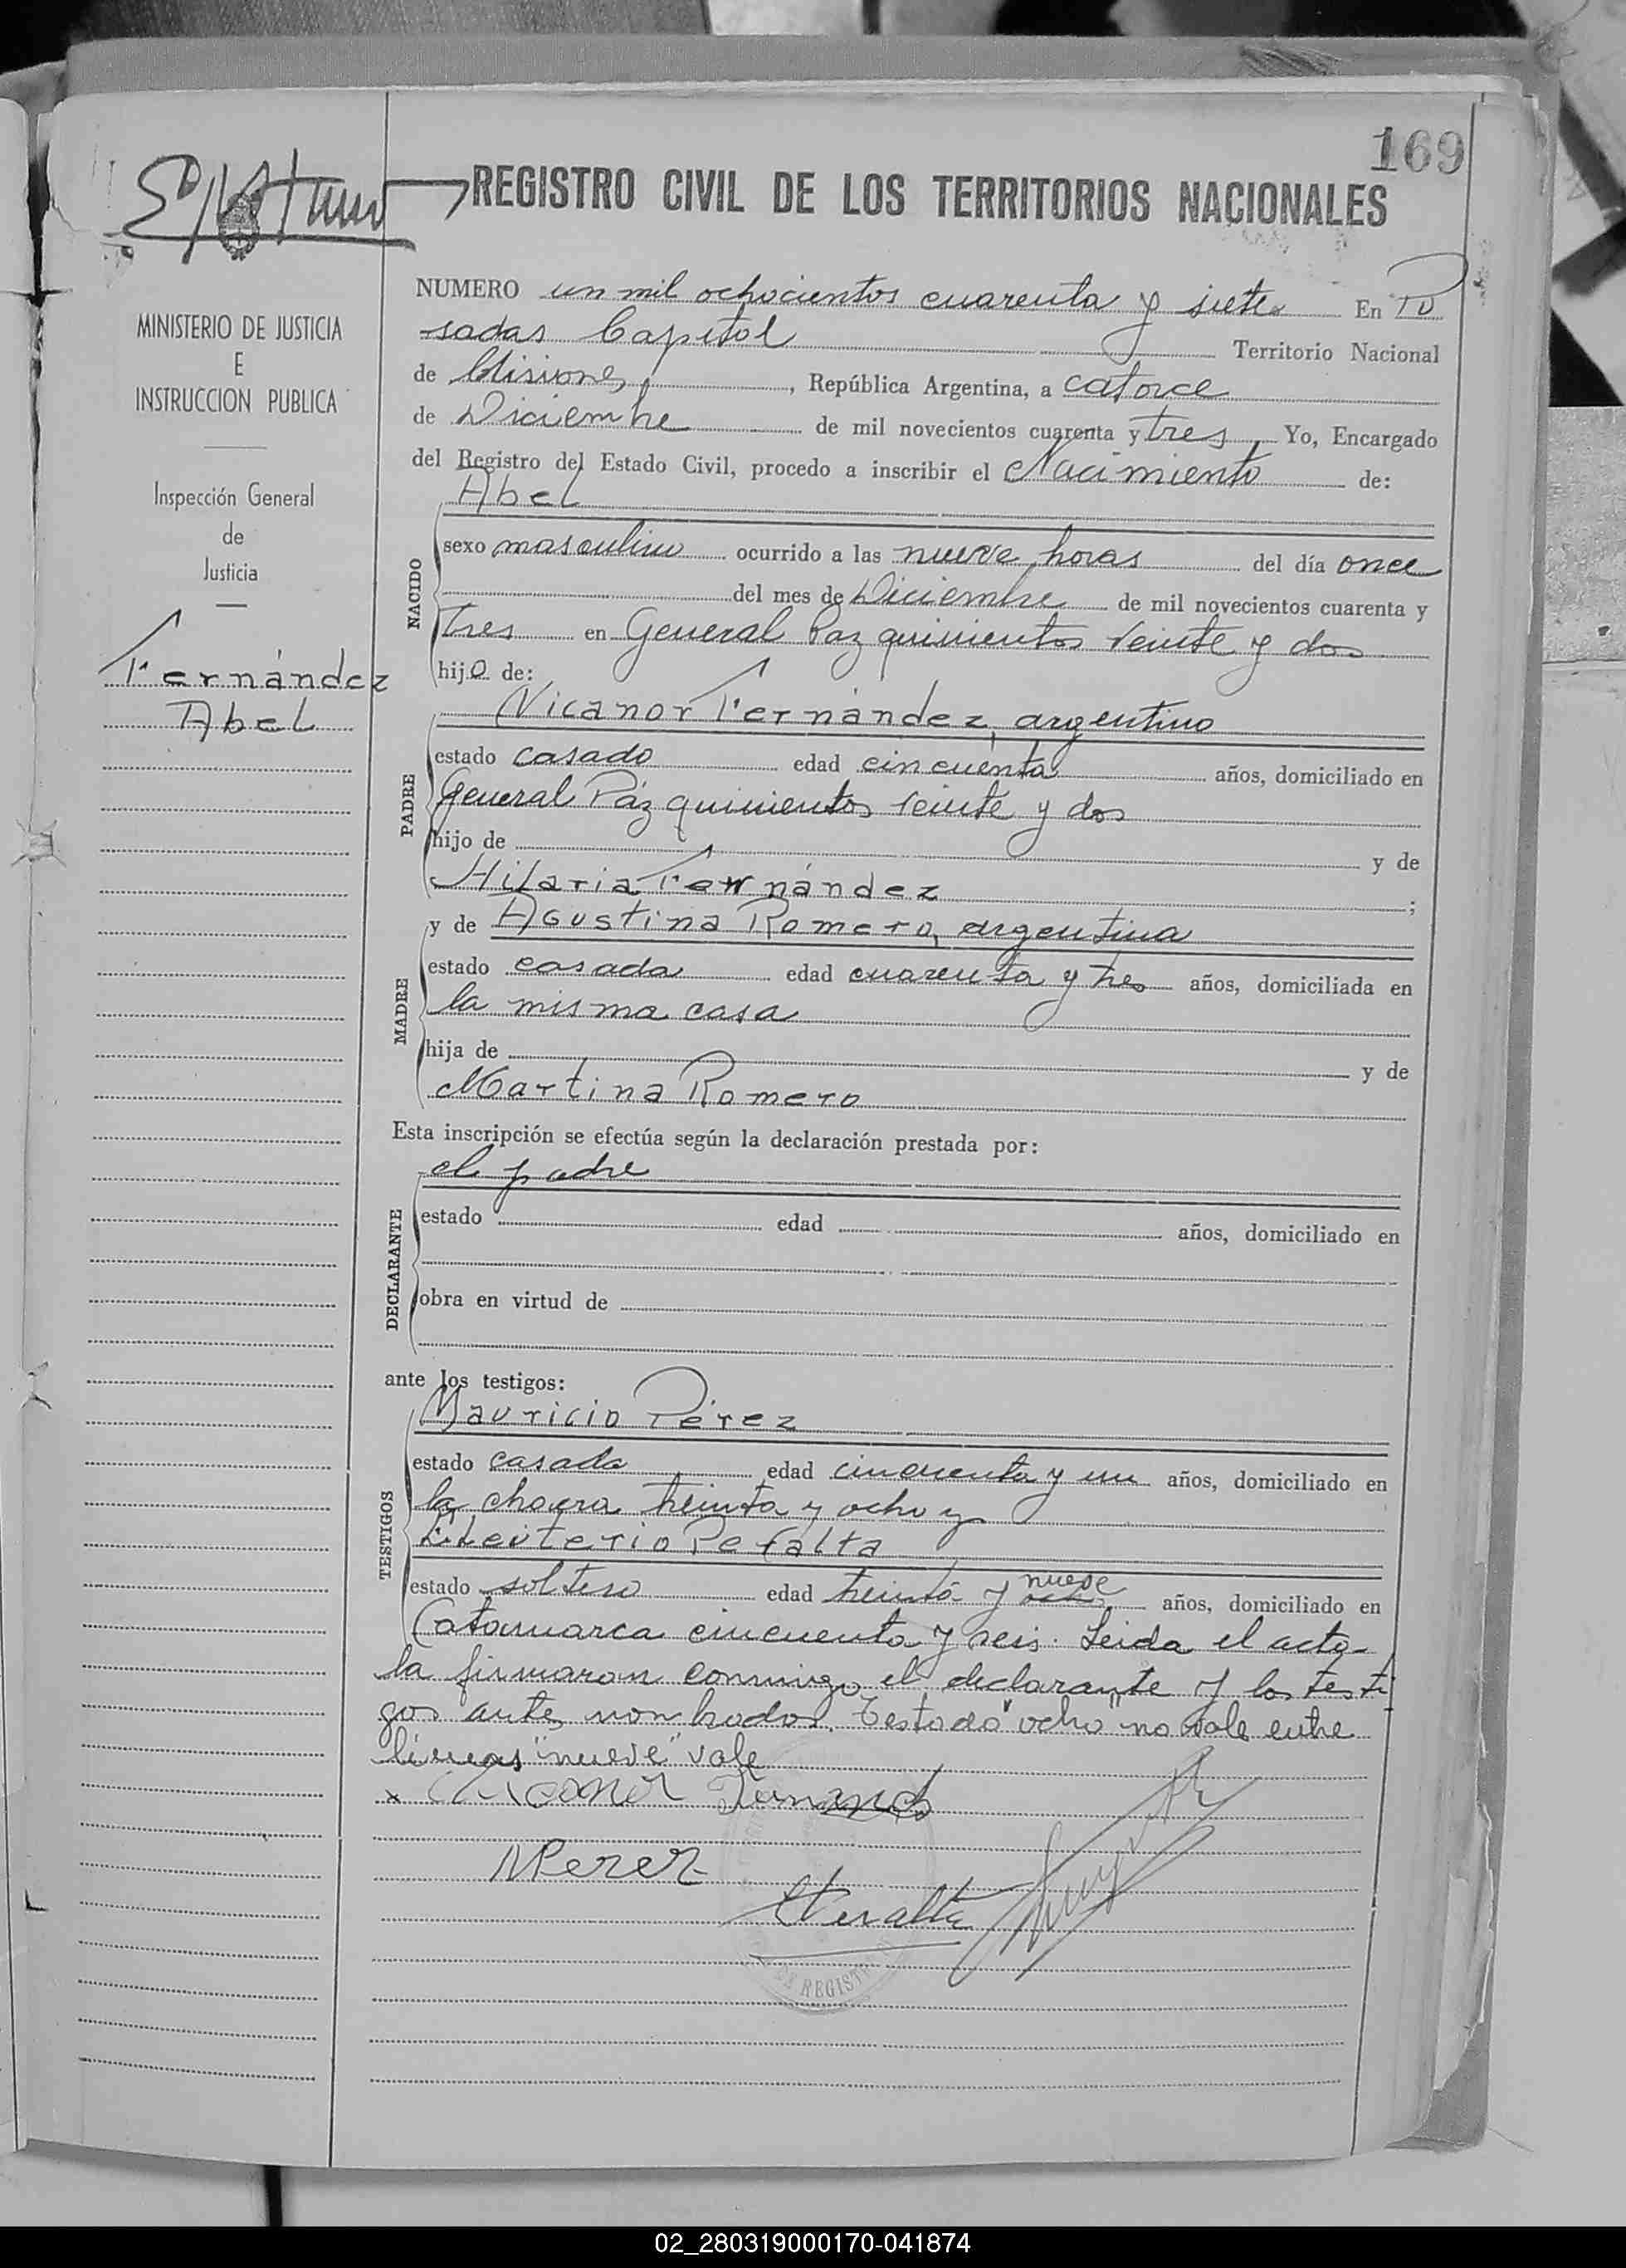 169
REGISTRO CIVIL DE LOS TERRITORIOS NACIONALES
MINISTERIO DE JUSTICIA
E
INSTRUCCION PUBLICA
Inspección General
de
Justicia
Fernández
Abel
NUMERO un mil ochocientos cuarenta y siete En Po
sadas Capital Territorio Nacional
de Misiones, República Argentina, a catorce
de Diciembre de mil novecientos cuarenta y tres, Yo, Encargado
del Registro del Estado Civil, procedo a inscribir el Nacimiento de:
Abel
NACIDO
sexo masculino ocurrido a las nueve horas del día once
del mes de Diciembre de mil novecientos cuarenta y
tres en General Paz quinientos veinte y dos
hijo de:
Nicanor Fernández, argentino
PADRE
estado casado edad cincuenta años, domiciliado en
General Paz quinientos veinte y dos
hijo de y de
Hilaria Fernández ;
y de Agustina Romero, argentina
MADRE
estado casada edad cuarenta y tres años, domiciliada en
la misma casa
hija de y de
Martina Romero
Esta inscripción se efectúa según la declaración prestada por:
el padre
DECLARANTE
estado edad años, domiciliado en
obra en virtud de
ante los testigos:
Mauricio Pérez
TESTIGOS
estado casado edad cincuenta y un años, domiciliado en
la chacra treinta y ocho y
Eleuterio Peralta
estado soltero edad treinta y ocho nueve años, domiciliado en
Catamarca cincuenta y seis. Leida el acta
la firmaron conmigo el declarante y los testi
gos antes nombrados. Testado "ocho" no vale entre
líneas "nueve" vale
x Nicanor Fernandez
MPerez
EPeralta
DE REGISTRO
02_280319000170-041874